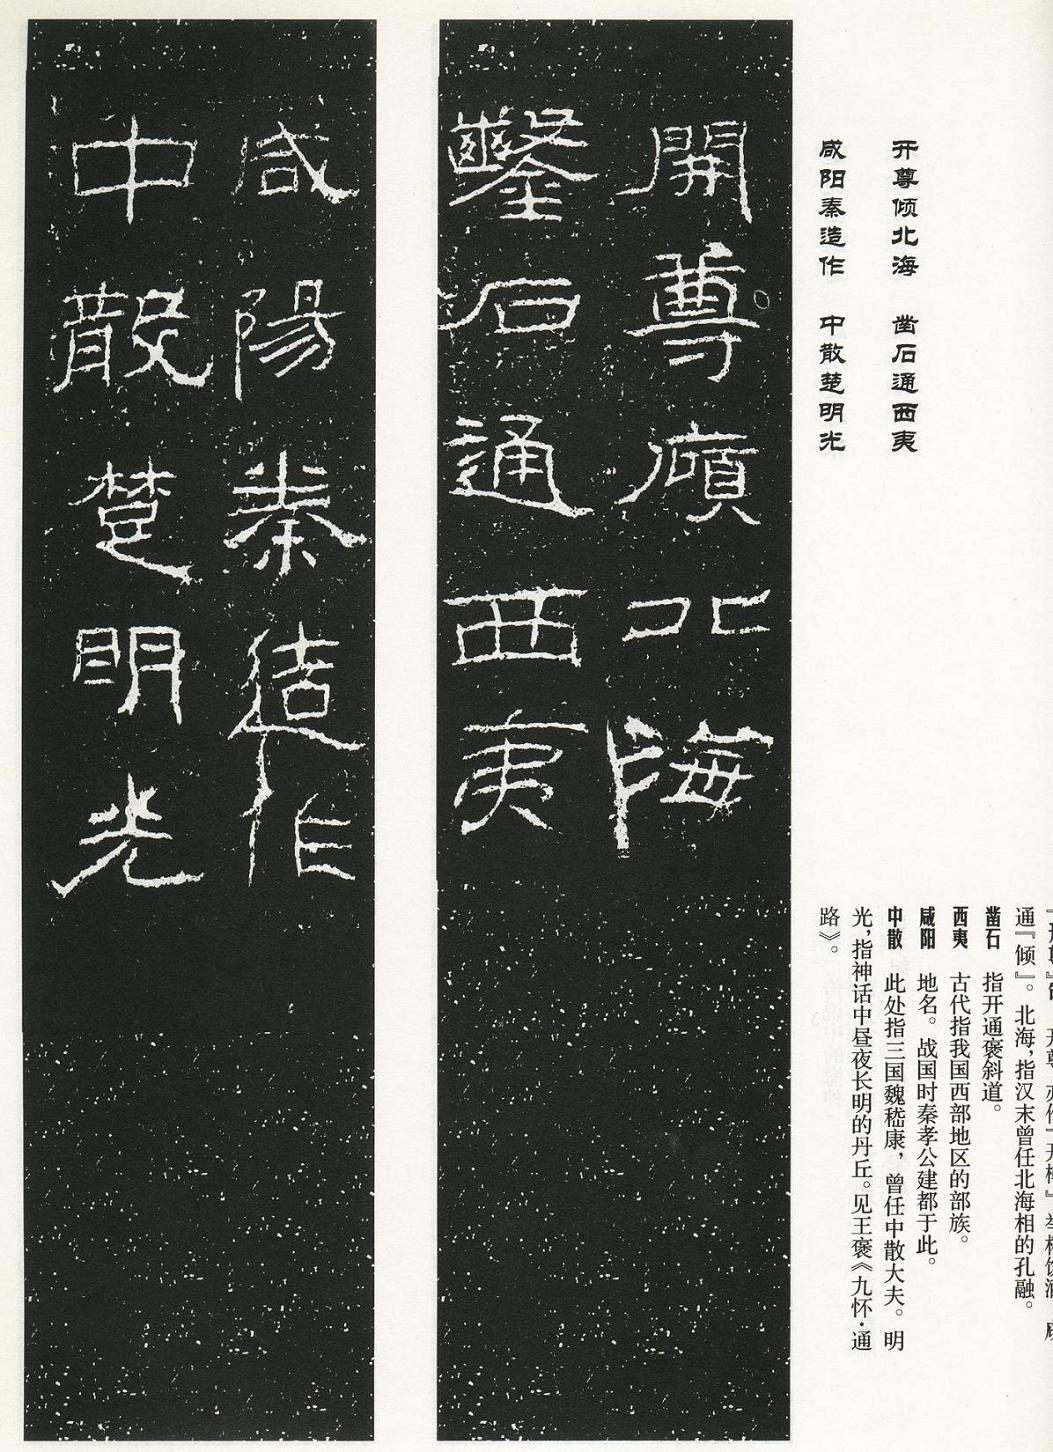 开尊倾北海　凿石通西夷
咸阳秦造作　中散楚明光
通『倾』。北海，指汉末曾任北海相的孔融。
凿石　指开通褒斜道。
西夷　古代指我国西部地区的部族。
咸阳　地名。战国时秦孝公建都于此。
中散　此处指三国魏嵇康，曾任中散大夫。明
光，指神话中昼夜长明的丹丘。见王褒《九怀·通
路》。
開尊廎北海
鑿石通西夷
咸陽秦造作
中散楚明光